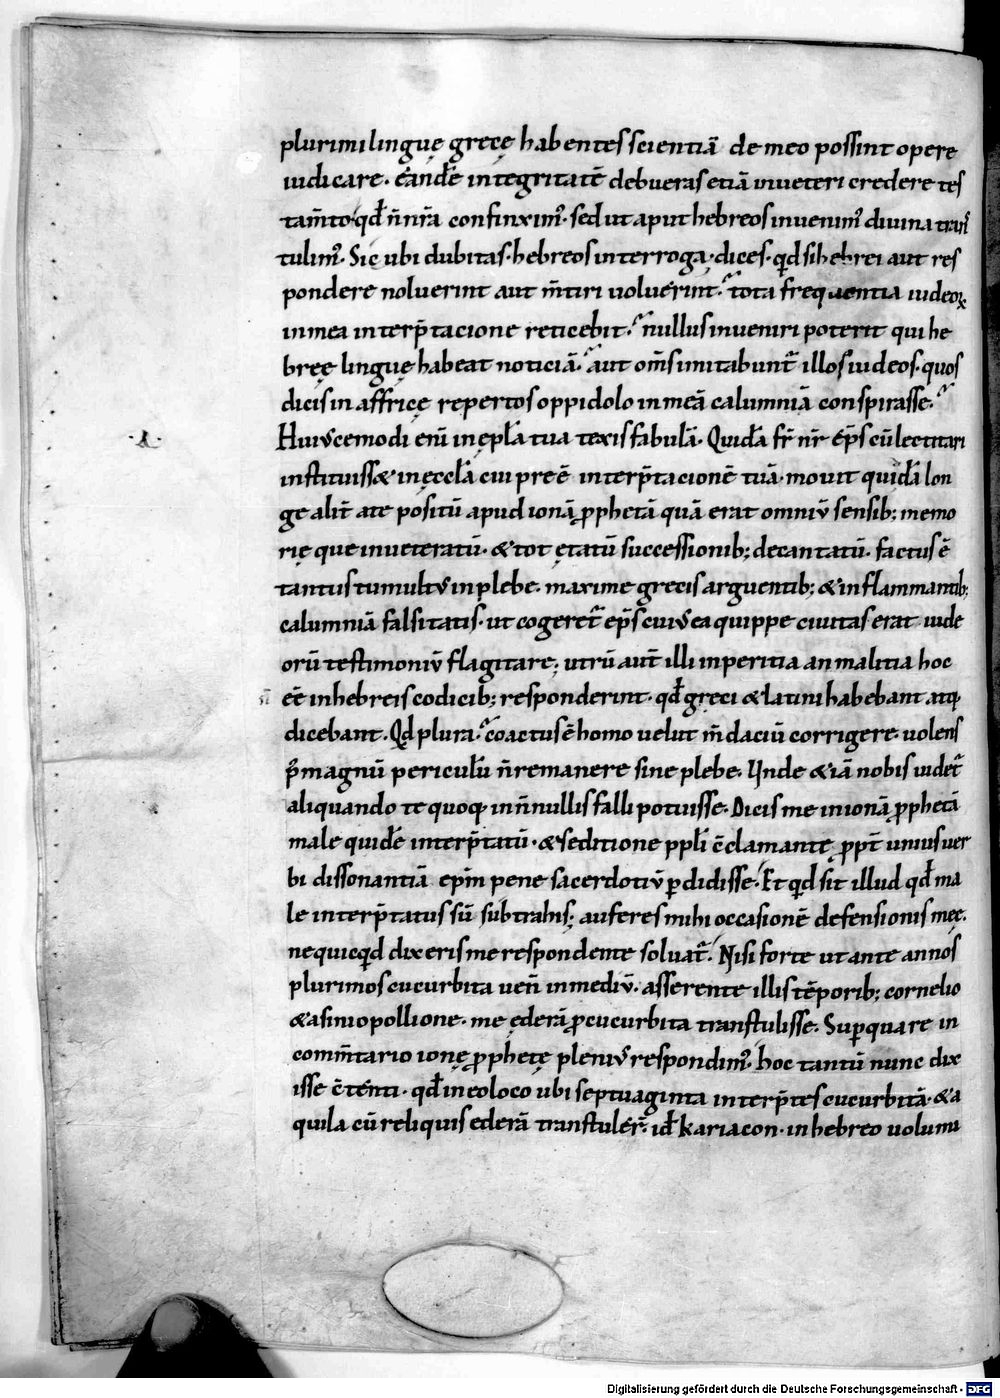 plurimi linguę gręcę habentes scientiā de meo possint opere
iudicare. eandē integritatē debueras etiā in ueteri credere tes
tam̄to qđ n̄ nr̄a confinxim᷒. sed ut aput hebreos inuenim᷒ diuina trans
tulim᷒. Sic ubi dubitas. hebreos interroga. dices. qd si hebrei aut res
pondere noluerint aut m̄tiri uoluerint. tota frequentia iudeoꝝ
in mea interp̄tacione reticebit. nullus inueniri poterit qui he
bręę linguę habeat noticiā. aut om̄s imitabunt̄ illos iudeos. quos
dicis in affricę repertos oppidolo in meā calumniā conspirasse.
.I.
Huiᷤcemodi enī in epl̄a tua texis fabulā. Quidā fr̄ nr̄ ep̄s cū lectitari
instituiss& in ęccl̄a cui pre ē interp̄tacionē tuā. mouit quidā lon
ge alit̄ a te positū apud ionā ꝓphetā quā erat omniū sensib; memo
rię que inueteratū. & tot ętatū successionib; decantatū. factus ē
tantus tumultus in plebe. maxime grecis arguentib; & inflammantib;
calumniā falsitatis. ut coger&̄ ep̄s cuius ea quippe ciuitas erat iude
orū testimoniū flagitare; utrū aut̄ illi inperitia an malitia hoc
eē in hebreis codicib; responderint. qđ gręci & latini habebant atq
dicebant. Qd plura. coactus ē homo uelut m̄daciū corrigere. uolens
p̄ magnū periculū n̄ remanere sine plebe. Unde & iā nobis uidet̄
aliquando te quoq; in n̄nullis falli potuisse. Dicis me in ionā ꝓphetā
male quidē interp̄tatū. & seditione ppl̄i c̄clamantę ꝓpt̄ unius uer
bi dissonantiā ep̄m pene sacerdotiū ꝑdidisse. Et qd sit illud qđ ma
le interp̄tatus sū subtrahis; auferes mihi occasionē defensionis męę.
ne quicqd dixeris me respondente soluat̄. Nisi forte ut ante annos
plurimos cucurbita uen̄ in mediū. asserente illis tēporib; cornelio
& asinio pollione. me ederā ꝓ cucurbita transtulisse. Suꝑ quare in
comm̄tario ionę ꝓphetę plenius respondim᷒. hoc tantū nunc dix
isse c̄tenti. qđ in eo loco ubi septuaginta interp̄tes cucurbitā. & a
quila cū reliquis ederā transtuler̄. id̄ kariacon. in hebreo uolumi